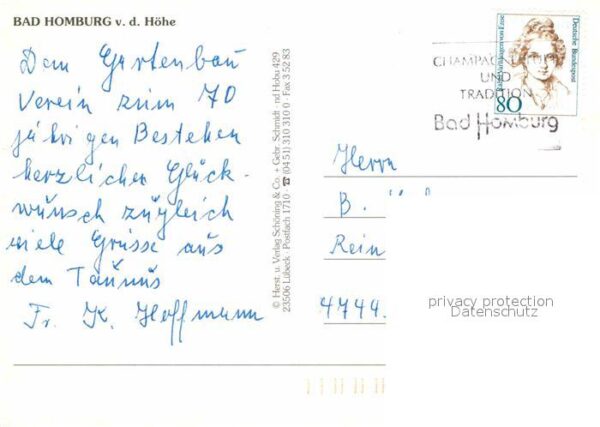 BAD HOMBURG v. d. Höhe
Dem Gartenbau
Verein zum 70
jährigen Bestehen
herzlichen Glück-
wünsch zügleich
viele Grüsse aus
dem Taünüs
Fr. K. Hoffmann
© Herst. u. Verlag Schöning & Co. + Gebr. Schmidt · nd Hobu 429
23506 Lübeck · Postfach 1710 · ☎ (04 51) 310 310 0 · Fax 3 52 83
Deutsche Bundespost
80
UND
TRADITION
Bad Homburg
Herrn
B.
Rein
4744.
privacy protection
Datenschutz